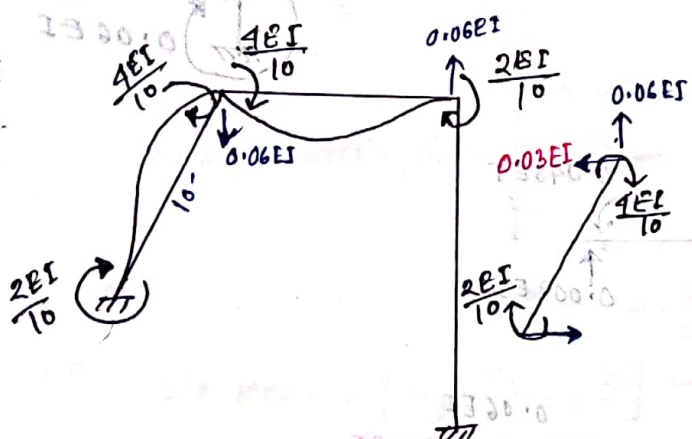 4EI/10
4EI/10
0.06EI
2EI/10
0.06EI
10
2EI/10
0.06EI
0.03EI
4EI/10
2EI/10